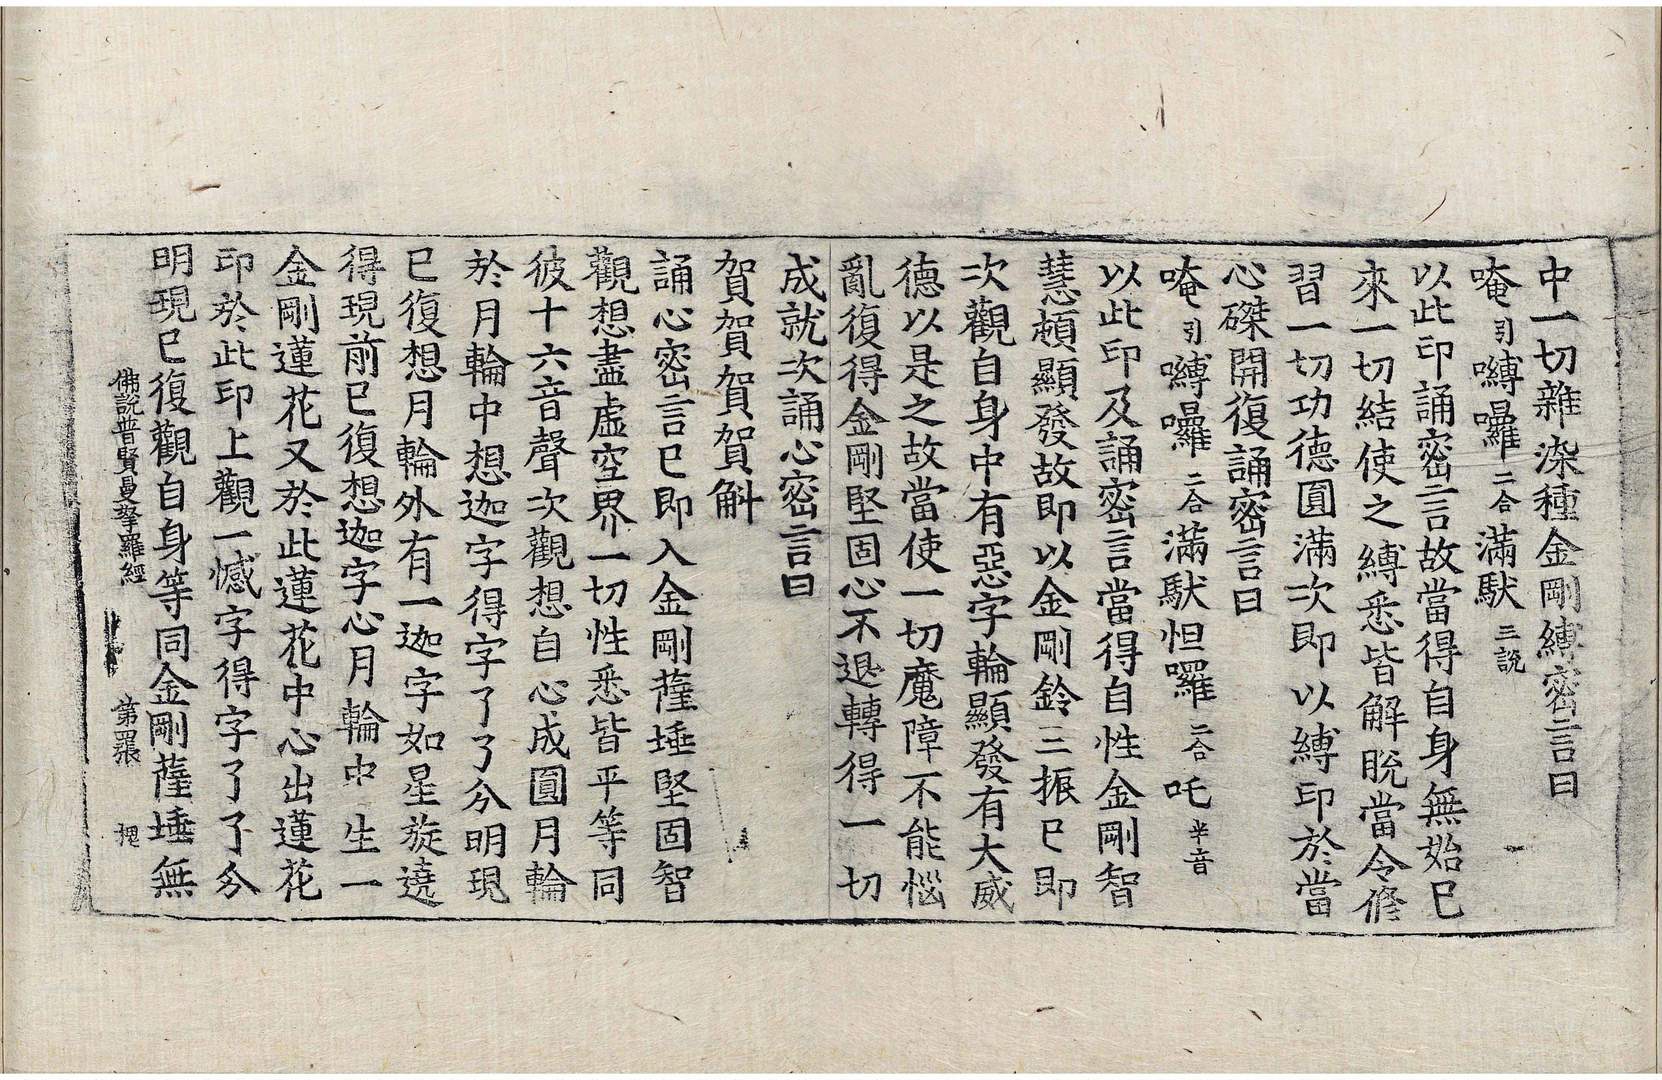 中一切雜染種金剛縛密言曰
唵引嚩囉二合滿馱三說
以此印誦密言故當得自身無始已
來一切結使之縛悉皆解脫當令修
習一切功德圓滿次即以縛印於當
心磔開復誦密言曰
唵引嚩囉二合滿馱怛囉二合吒半音
以此印及誦密言當得自性金剛智
慧頓顯發故即以金剛鈴三振已即
次觀自身中有惡字輪顯發有大威
德以是之故當使一切魔障不能惱
亂復得金剛堅固心不退轉得一切
成就次誦心密言曰
賀賀賀賀斛
誦心密言已即入金剛薩埵堅固智
觀想盡虛空界一切性悉皆平等同
彼十六音聲次觀想自心成圓月輪
於月輪中想迦字得字了了分明現
已復想月輪外有一迦字如星旋遶
得現前已復想迦字心月輪中生一
金剛蓮花又於此蓮花中心出蓮花
印於此印上觀一憾字得字了了分
明現已復觀自身等同金剛薩埵無
佛說普賢曼拏羅經 第四張